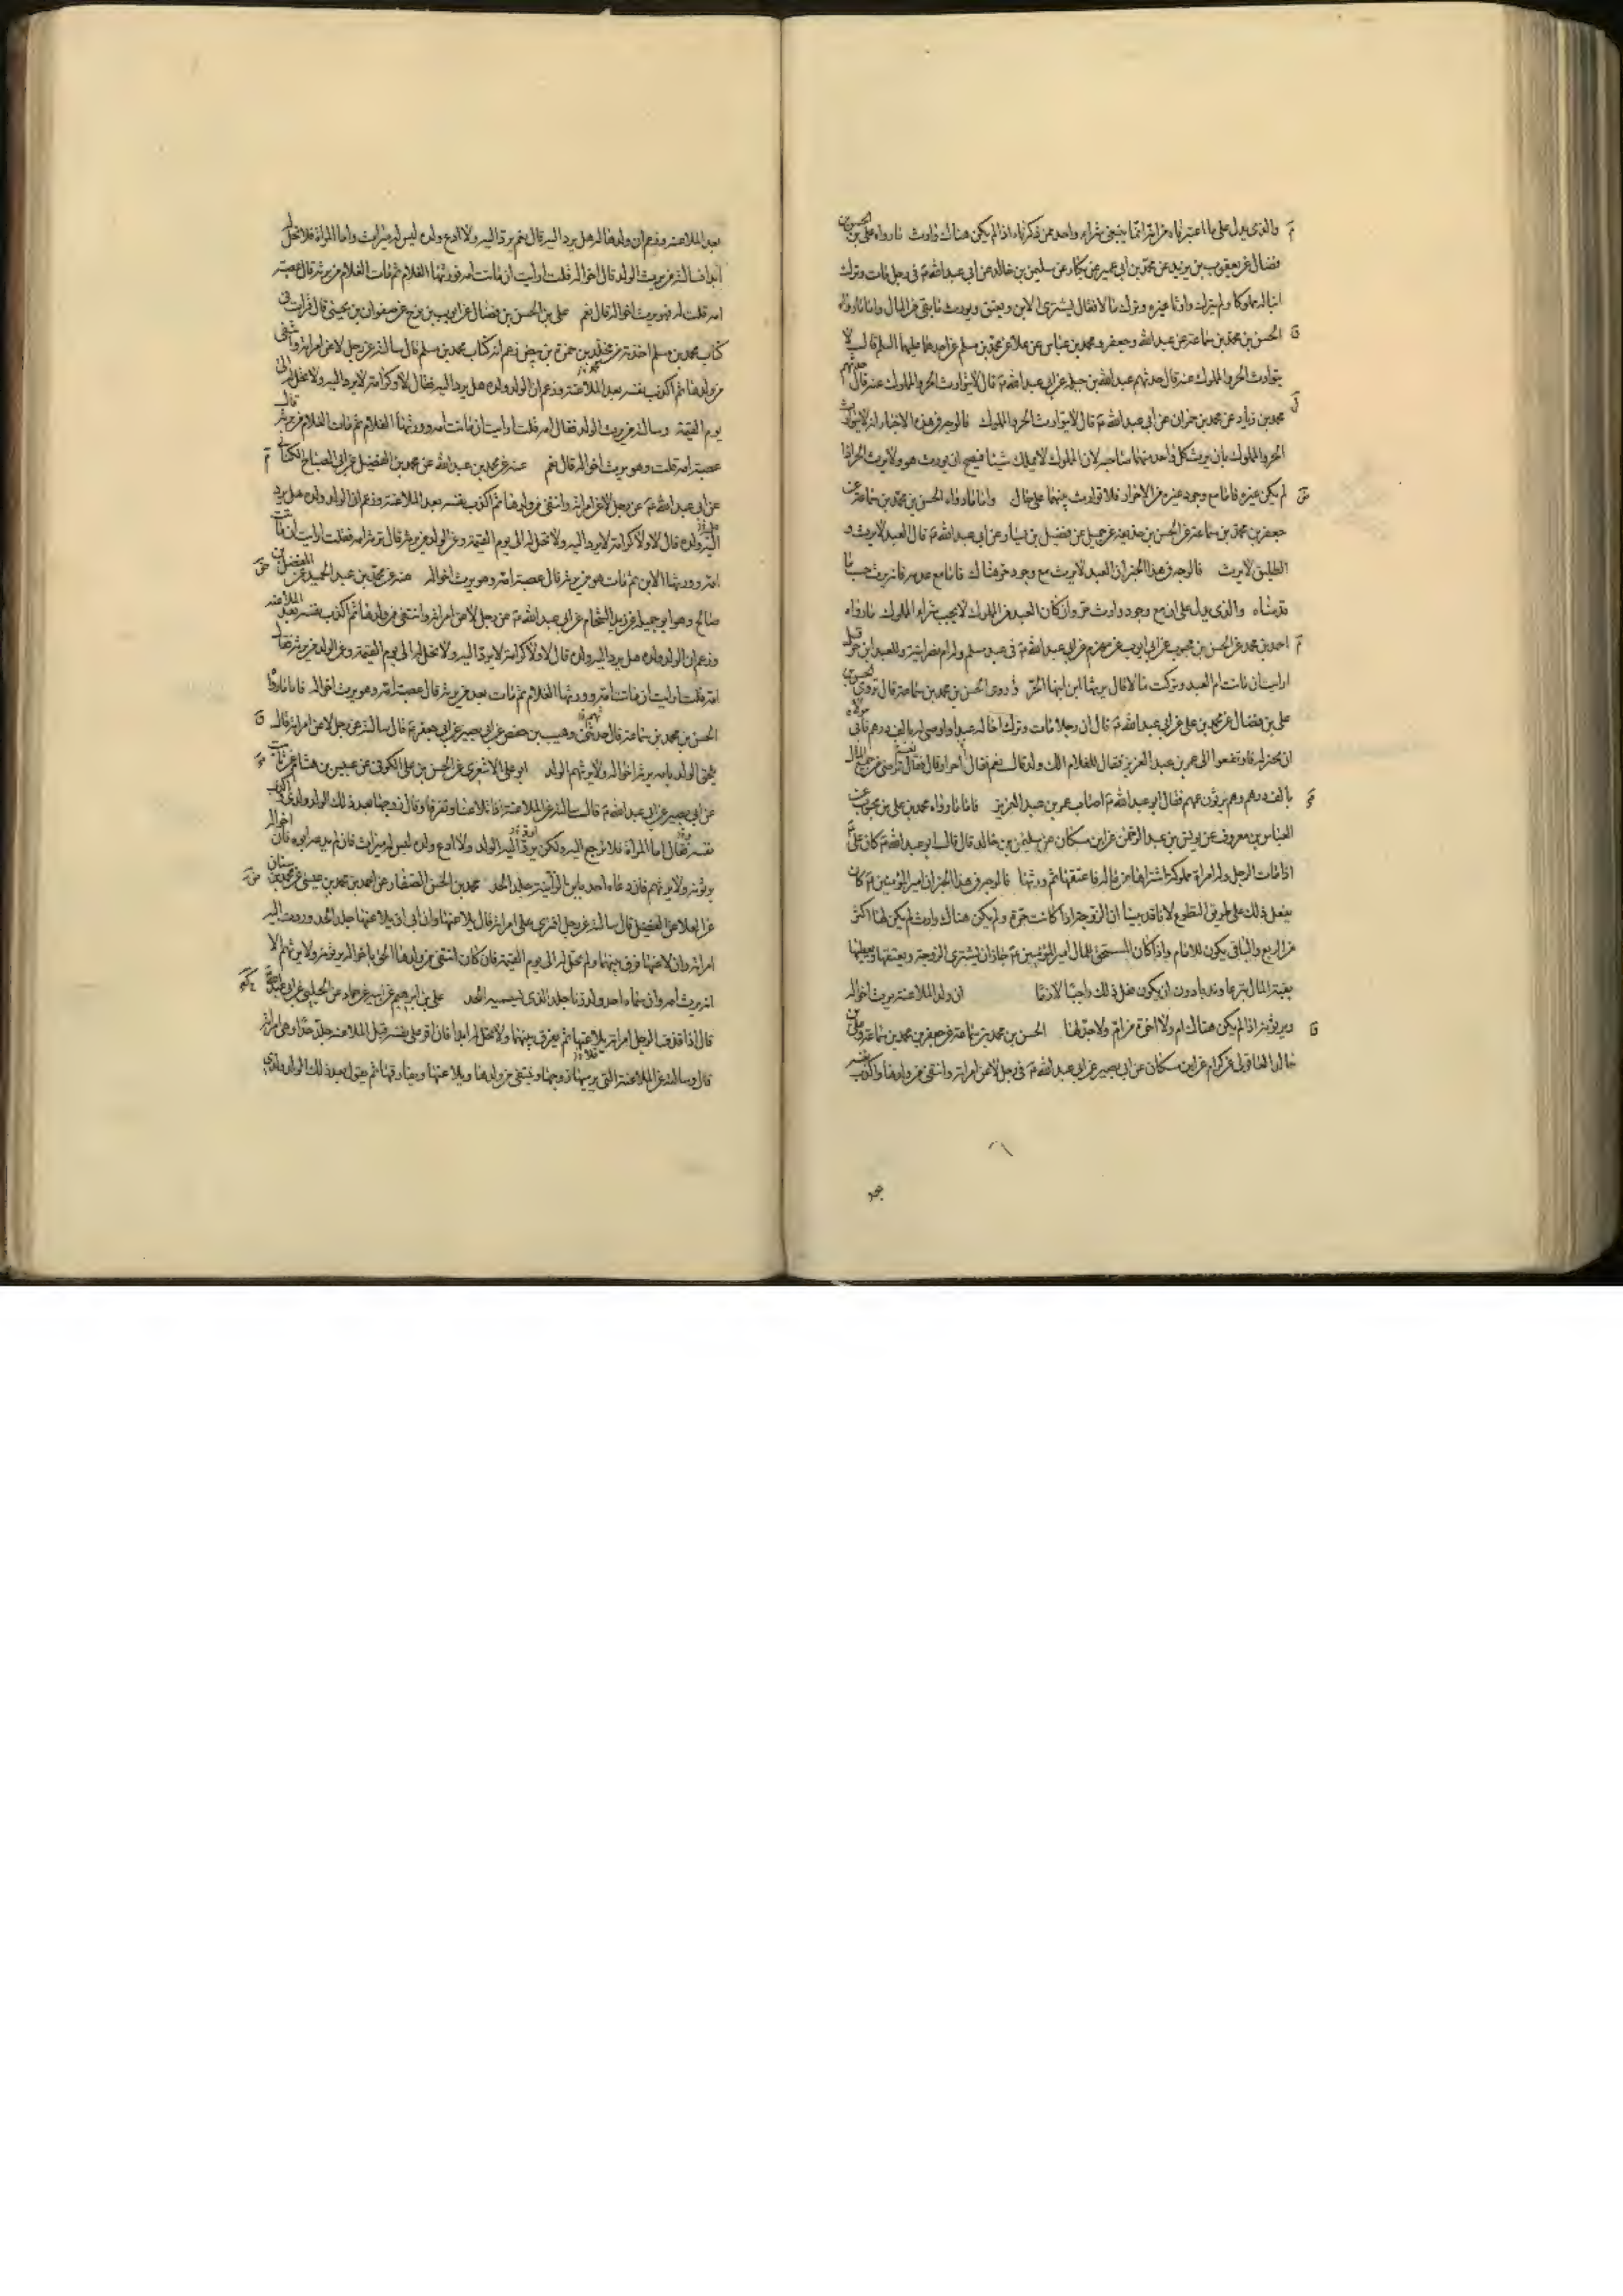 والذى يدل على ما اعتبرناه من انه انما ينبغى شراء واحد ممن ذكرناه اذا لم يكن هناك وارث ما رواه على بن الحسن بن
فضال عن يعقوب بن يزيد عن محمد بن ابى عمير عن بكار عن سليمن بن خالد عن ابى عبدالله ع فى رجل مات وترك
ابنا له مملوكا ولم يترك وارثا غيره وترك مالا فقال يشترى الابن ويعتق ويورث ما بقى من المال واما ما رواه
الحسن بن محمد بن سماعة عن عبد الله وجعفر ومحمد بن عباس عن علا عن محمد بن مسلم عن احدهما عليهما السلم قال لا
يتوارث الحر والمملوك عنه قال حدثهم عبد الله بن جبلة عن ابى عبدالله ع قال لا يتوارث الحر والمملوك عنه قال حدثهم
محمد بن زياد عن محمد بن حمران عن ابى عبدالله ع قال لا يتوارث الحر والمملوك فالوجه فى هذه الاخبار انه لا يتوارث
الحر والمملوك بان يرث كل واحد منهما صاحبه لان المملوك لا يملك شيئا فيصح ان يورث هو ولا يرث الحر اذا
لم يكن غيره فاما مع وجود غيره من الاحرار فلا توارث بينهما على حال واما ما رواه الحسن بن محمد بن سماعة عن
جعفر بن محمد بن سماعة عن الحسن بن حذيفة عن جميل عن فضيل بن يسار عن ابى عبدالله ع قال العبد لا يرث و
الطليق لا يرث فالوجه فى هذا الخبر ان العبد لا يرث مع وجود حر هناك فاما مع عدمه فانه يرث حسب ما
قدمناه والذى يدل على ان مع وجود وارث حر وان كان العبد فى الملوك لا يجب شراء المملوك ما رواه
احمد بن محمد عن الحسن بن محبوب عن ابى ايوب عن مهزم عن ابى عبدالله ع فى عبد مسلم وله ام نصرانية وللعبد ابن حر قيل
ارايت ان ماتت ام العبد وتركت مالا قال يرثها ابن ابنها الحر وروى الحسن بن محمد بن سماعة قال روى الحسن بن
على بن فضال عن محمد بن على عن ابى عبدالله ع قال ان رجلا مات وترك اخا له عبدا واوصى له بالف درهم فابى مولاه
ان يجيز له فارتفعوا الى عمر بن عبد العزيز فقال للغلام الك ولد قال نعم فقال احرار قال نعم فقال ترضى من جميع المال
بالف درهم وهم يرثون عمهم فقال ابو عبدالله ع اصاب عمر بن عبد العزيز فاما ما رواه محمد بن على بن محبوب عن
العباس بن معروف عن يونس بن عبد الرحمن عن ابن مسكان عن سليمن بن خالد قال قال ابو عبدالله ع كان على ع
اذا مات الرجل وله امراة مملوكة اشتراها من ماله فاعتقها ثم ورثها فالوجه فى هذا الخبر ان امير المؤمنين ع كان
يفعل ذلك على طريق التطوع لانا قد بينا ان الزوجة اذا كانت حرة ولم يكن هناك وارث لم يكن لها اكثر
من الربع والباقى يكون للامام واذا كان المستحق للمال امير المؤمنين ع جاز ان يشترى الزوجة ويعتقها ويعطيها
بقية المال تبرعا وندبا دون ان يكون فعل ذلك واجبا لازما ان ولد الملاعنة يرث اخواله
ويرثونه اذا لم يكن هناك ام ولا اخوة من ام ولا جد لها الحسن بن محمد بن سماعة عن جعفر بن محمد بن سماعة وعلى بن
خالد العاقولى عن كرام عن ابن مسكان عن ابى بصير عن ابى عبدالله ع فى رجل لاعن امراته وانتفى من ولدها واكذب نفسه
بعد الملاعنة وزعم ان ولدها له هل يرد اليه قال نعم يرد اليه ولا ادع ولده ليس له ميراث واما المراة فلا تحل له
ابدا فسالته من يرث الولد قال اخواله قلت ارايت ان ماتت امه فورثها الغلام ثم مات الغلام من يرثه قال عصبة
امه قلت له فهو يرث اخواله قال نعم على بن الحسن بن فضال عن ايوب بن نوح عن صفوان بن يحيى قال قرات فى
كتاب محمد بن مسلم اخذته من مخلد بن حمزة بن بيض زعم انه كتاب محمد بن مسلم قال سالته عن رجل لاعن امراته وانتفى
من ولدها ثم اكذب نفسه بعد الملاعنة وزعم ان الولد ولده هل يرد اليه فقال لا ولا كرامة لا يرد اليه ولا تحل له الى
يوم القيمة وسالته من يرث الولد فقال امه قلت ارايت ان ماتت امه وورثها الغلام ثم مات الغلام من يرثه قال
عصبة امه قلت وهو يرث اخواله قال نعم عنه عن محمد بن عبد الله عن محمد بن الفضيل عن ابى الصباح الكنانى
عن ابى عبدالله ع عن رجل لاعن امراته وانتفى من ولدها ثم اكذب نفسه بعد الملاعنة وزعم ان الولد ولده هل يرد
اليه ولده قال لا ولا كرامة لا يرد اليه ولا تحل له الى يوم القيمة وعن الولد من يرثه قال ترثه امه فقلت ارايت ان ماتت
امه وورثها الابن ثم مات هو من يرثه قال عصبة امه وهو يرث اخواله عنه عن محمد بن عبد الحميد عن المفضل بن
صالح وهو ابو جميلة عن زيد الشحام عن ابى عبدالله ع عن رجل لاعن امراته وانتفى من ولدها ثم اكذب نفسه بعد الملاعنة
وزعم ان الولد ولده هل يرد اليه ولده قال لا ولا كرامة لا يرد اليه ولا تحل له الى يوم القيمة وعن الولد من يرثه فقال
امه قلت ارايت ان ماتت امه وورثها الغلام ثم مات بعد من يرثه قال عصبة امه وهو يرث اخواله فاما ما رواه
الحسن بن محمد بن سماعة قال حدثنى وهيب بن حفص عن ابى بصير عن ابى جعفر ع قال سالته عن رجل لاعن امراته قال
يلحق الولد بامه يرثه اخواله ولا يرثهم الولد ابو على الاشعرى عن الحسن بن على الكوفى عن عبيس بن هشام عن ثابت
عن ابى بصير عن ابى عبدالله ع قال سالته عن الملاعنة اذا تلاعنا وتفرقا وقال زوجها بعد ذلك الولد ولدى واكذب
نفسه فقال اما المراة فلا ترجع اليه ولكن يرد اليه الولد ولا ادع ولده ليس له ميراث فان لم يدعه ابوه فان اخواله
يرثونه ولا يرثهم فان دعاه احد بابن الزانية جلد الحد محمد بن الحسن الصفار عن احمد بن محمد بن عيسى عن محمد بن سنان
عن العلا عن الفضيل قال سالته عن رجل افترى على امراته قال يلاعنها وان ابى ان يلاعنها جلد الحد وردت اليه
امراته وان لاعنها فرق بينهما ولم تحل له الى يوم القيمة فان كان انتفى من ولدها الحق باخواله يرثونه ولا يرثهم الا
انه يرث امه وان سماه احد ولد زنا جلد الذى يسميه الحد على بن ابرهيم عن ابيه عن حماد عن الحلبى عن ابى عبدالله ع
قال اذا قذف الرجل امراته يلاعنها ثم يفرق بينهما ولا تحل له ابدا فان اقر على نفسه قبل الملاعنة جلد حدا وهى امراته
قال وسالته عن الملاعنة التى يرميها زوجها وينتفى من ولدها ويلاعنها ويفارقها ثم يقول بعد ذلك الولد ولدى